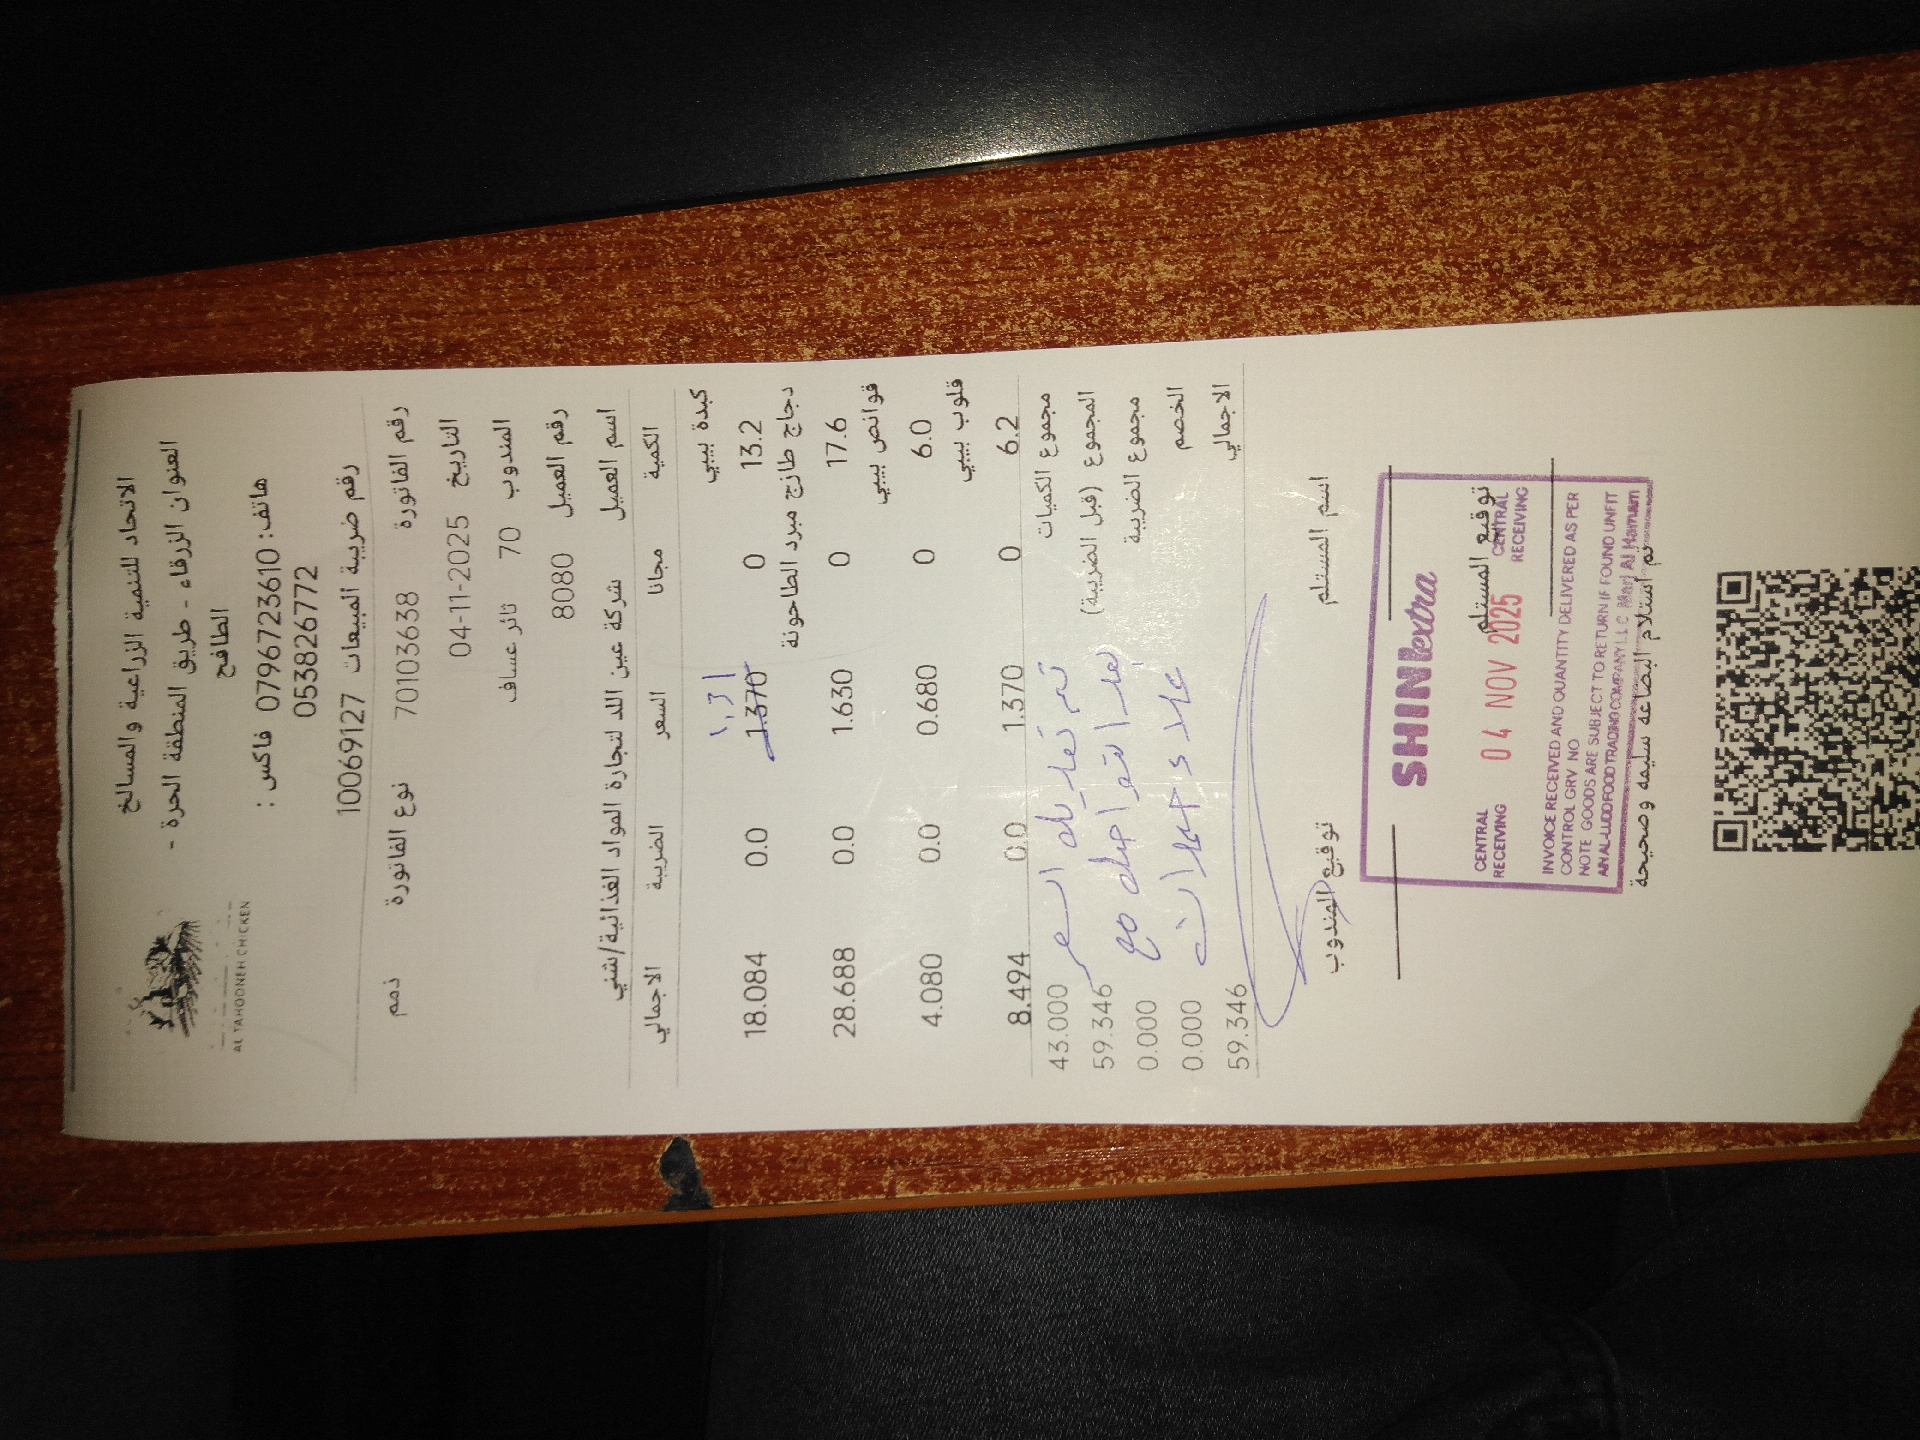 AL TAHOONEH CHICKEN
الاتحاد للتنمية الزراعية والمسالخ
العنوان الزرقاء - طريق المنطقة الحرة -
الطافح
هاتف: 0796723610 فاكس :
053826772
رقم ضريبة المبيعات 10069127
رقم الفاتورة 70103638 نوع الفاتورة ذمم
التاريخ 04-11-2025
المندوب 70 ثائر عساف
رقم العميل 8080
اسم العميل شركة عين اللد لتجارة المواد الغذائية/شني
الكمية مجانا السعر الضريبة الاجمالي
كبدة بيبي
١,٣١
13.2 0 1.370 0.0 18.084
دجاج طازج مبرد الطاحونة
17.6 0 1.630 0.0 28.688
قوانص بيبي
6.0 0 0.680 0.0 4.080
قلوب بيبي
6.2 0 1.370 0.0 8.494
مجموع الكميات 43.000
المجموع (قبل الضريبة) 59.346
مجموع الضريبة 0.000
الخصم 0.000
الاجمالي 59.346
تم تعديل السعر
مع
اسم المستلم توقيع المندوب
توقيع المستلم
SHINIextra
CENTRAL RECEIVING 04 NOV 2025 CENTRAL RECEIVING
INVOICE RECEIVED AND QUANTITY DELIVERED AS PER
CONTROL GRV NO
NOTE GOODS ARE SUBJECT TO RETURN IF FOUND UNFIT
AIN AL-LUDD FOOD TRADING COMPANY LLC Marj Al Hamam
تم استلام البضاعه سليمه وصحيحة